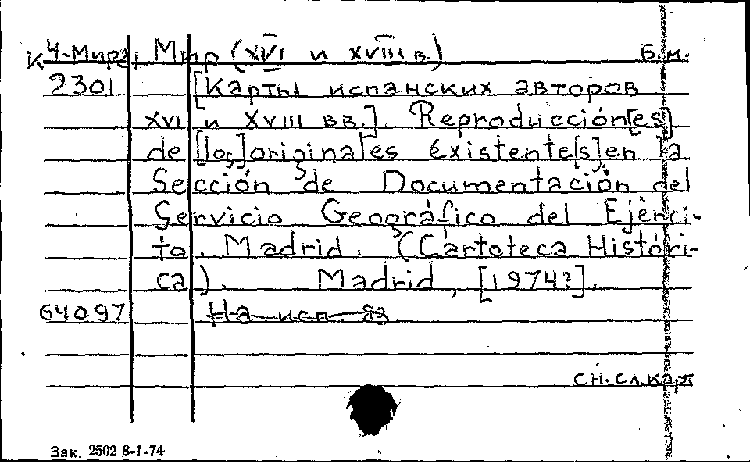 К 4-Мира, Мир (XVI и XVIII в.) Б.м.
2301 [Карты испанских авторов
XVI и XVIII вв.]. Reproducción[es]
de [los] originales existente[s] en la
Sección de Documentación del
Servicio Geográfico del Ejérci-
to. Madrid. (Cartoteca Históri-
ca). Madrid, [1974?].
64097 На исп. яз
сн.сл.карт
Зак. 2502 8-1-74